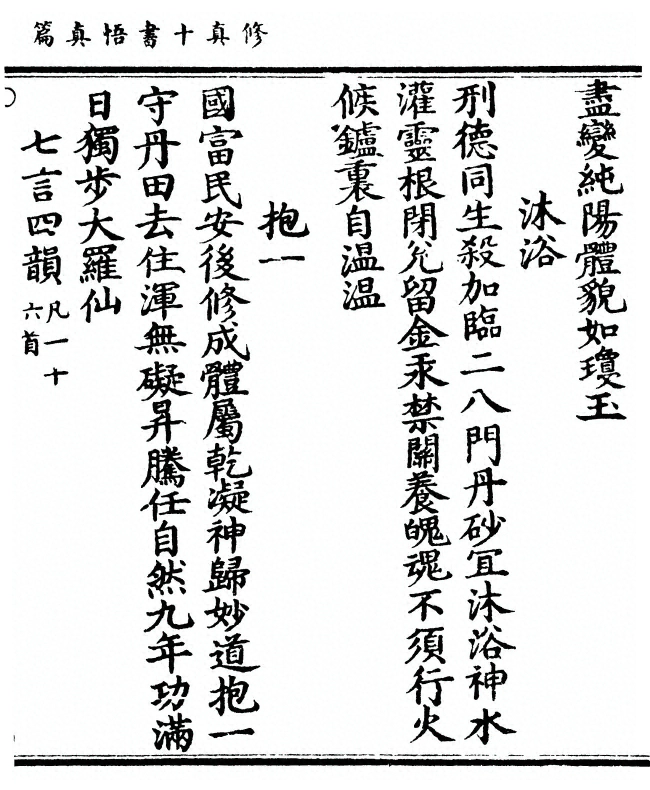 修真十書悟真篇
盡變純陽體貌如瓊玉
沐浴
刑德同生殺加臨二八門丹砂宜沐浴神水
灌靈根閉兊留金汞禁關養魄魂不須行火
候鑪裏自温温
抱一
國富民安後修成體屬乾凝神歸妙道抱一
守丹田去住渾無礙昇騰任自然九年功滿
日獨步大羅仙
七言四韻凡一十六首